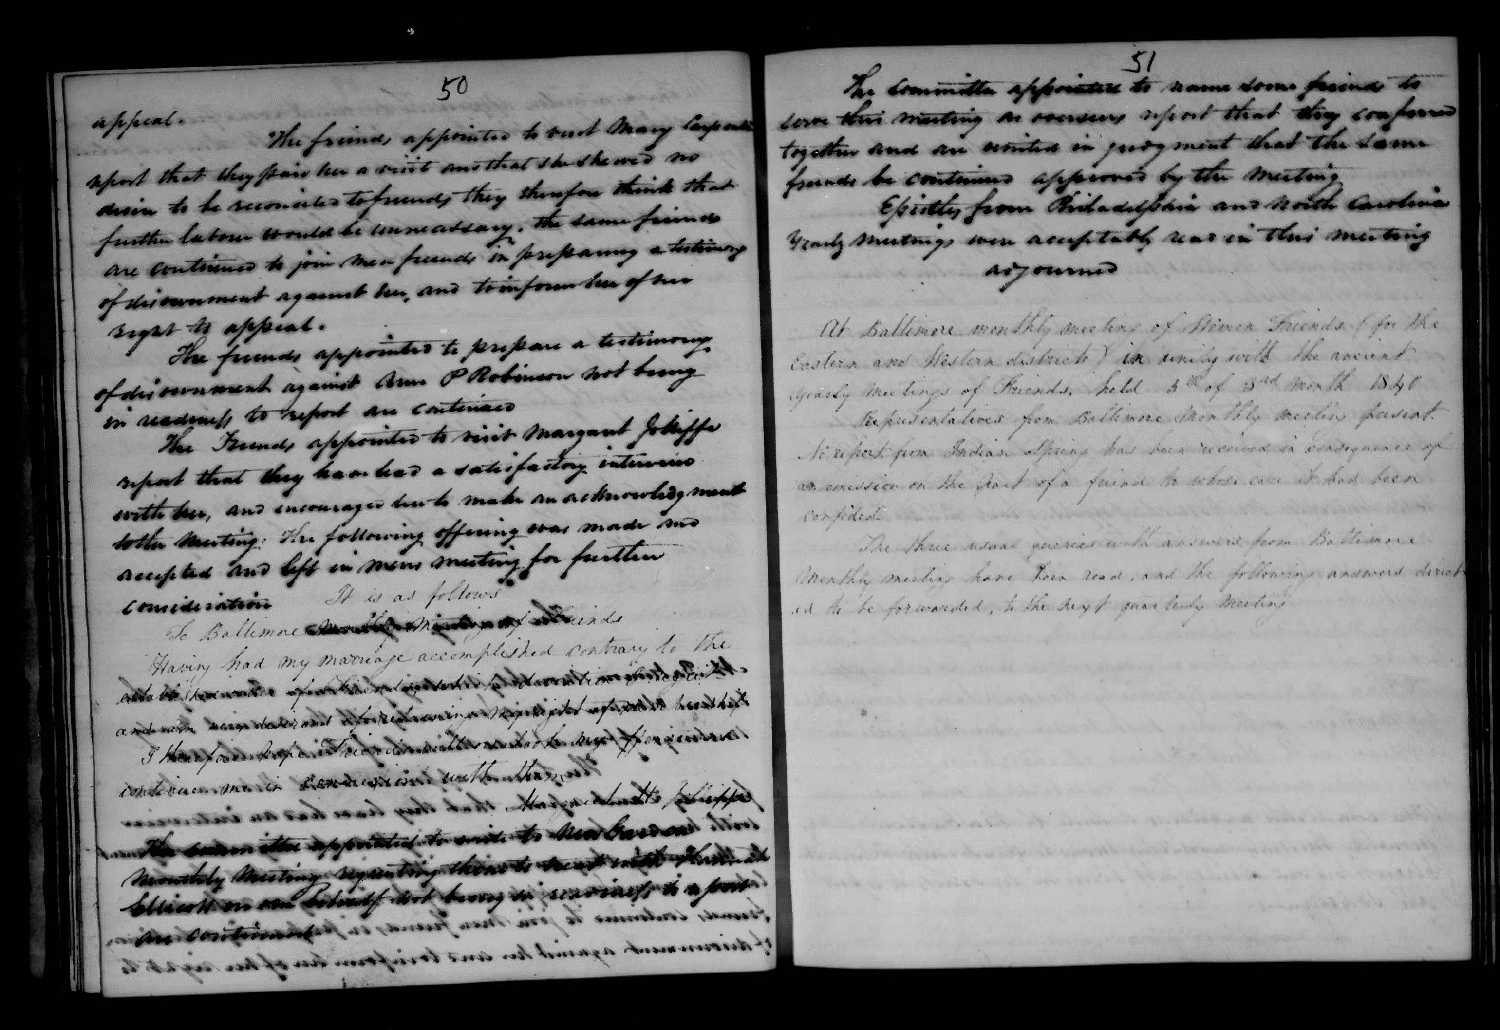 50
appeal.
The friends appointed to visit Mary Carpenter
report that they paid her a visit and that she shewed no
desire to be reconciled to friends they therefore think that
further labour would be unnecessary. the same friends
are continued to join men friends in preparing a testimony
of disownment against her, and to inform her of her
right to appeal.
The friends appointed to prepare a testimony
of disownment against Ann P Robinson not being
in readiness to report are continued
The Friends appointed to visit Margaret Joliffe
report that they have had a satisfactory interview
with her, and encouraged her to make an acknowledgment
to the Meeting. The following offering was made and
accepted and left in mens meeting for further
consideration It is as follows
To Baltimore Monthly meeting of Friends
Having had my marriage accomplished contrary to the
of
I therefore hope
continue me in communion with them
Margaret Joliffe
The committee appointed to write to
Monthly Meeting requesting them to treat with
Ellicott on our behalf not being in readiness to report
are continued
51
The committee appointed to name some friends to
serve this meeting as overseers report that they conferred
together and are united in judgment that the same
friends be continued approved by the meeting
Epistles from Philadelphia and North Carolina
Yearly Meetings were acceptably read in this meeting
adjourned
At Baltimore monthly meeting of Women Friends (for the
Eastern and Western districts) in unity with the ancient
yearly meetings of Friends, held 5th of 3rd month 1840
Representatives from Baltimore Monthly meeting present.
No report from Indian Spring has been received in consequence of
an omission on the part of a friend to whose care it had been
confided
The three usual queries with answers from Baltimore
Monthly meeting have been read, and the following answers direct
ed to be forwarded, to the next quarterly Meeting